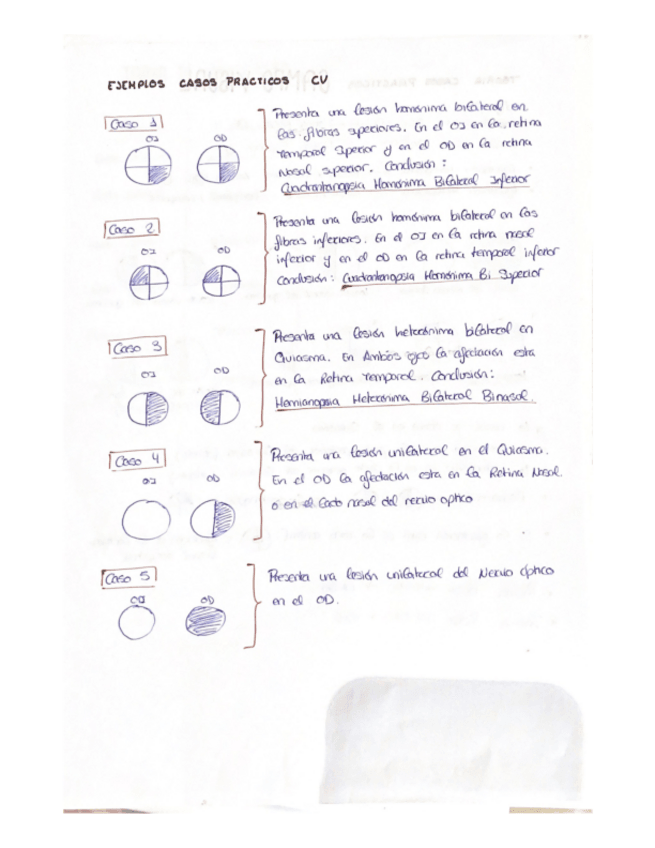 EJEMPLOS CASOS PRACTICOS CV
Caso 1
OI OD
Presenta una lesión homónima bilateral en
las fibras superiores. En el OI en la retina
temporal superior y en el OD en la retina
nasal superior. Conclusión:
Cuadrantanopsia Homónima Bilateral Inferior
Caso 2
OI OD
Presenta una lesión homónima bilateral en las
fibras inferiores. En el OI en la retina nasal
inferior y en el OD en la retina temporal inferior
Conclusión: Cuadrantanopsia Homónima Bi Superior
Caso 3
OI OD
Presenta una lesión heterónima bilateral en
Quiasma. En Ambos ojos la afectación esta
en la Retina Temporal. Conclusión:
Hemianopsia Heterónima Bilateral Binasal.
Caso 4
OI OD
Presenta una lesión unilateral en el Quiasma.
En el OD la afectación esta en la Retina Nasal.
o en el lado nasal del nervio optico
Caso 5
OI OD
Presenta una lesión unilateral del Nervio óptico
en el OD.